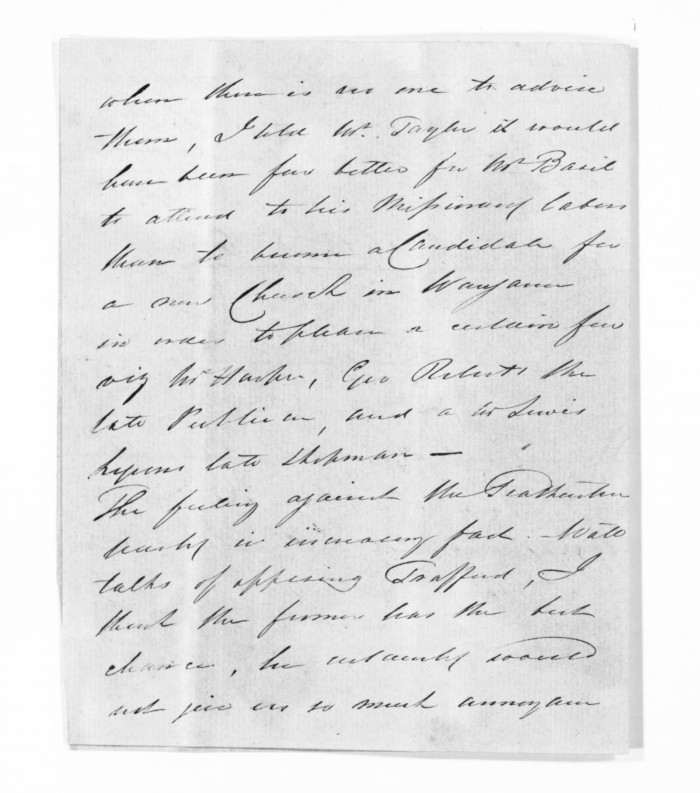 when there is no one to advise
them, I told Mr. Taylor it would
have been far better for Mr Basil
to attend to his Missionary labors
than to become a Candidate for
a new Church in Wanganui
in order to please a certain few
viz Mr Harper, Geo Roberts the
late Publican, and a Mr Lewis
late Shopman —
The feeling against the Featherston
party is increasing fast. - Watt
talks of opposing Trafford, I
think the former has the best
chance, he certainly would
not give us so much annoyance